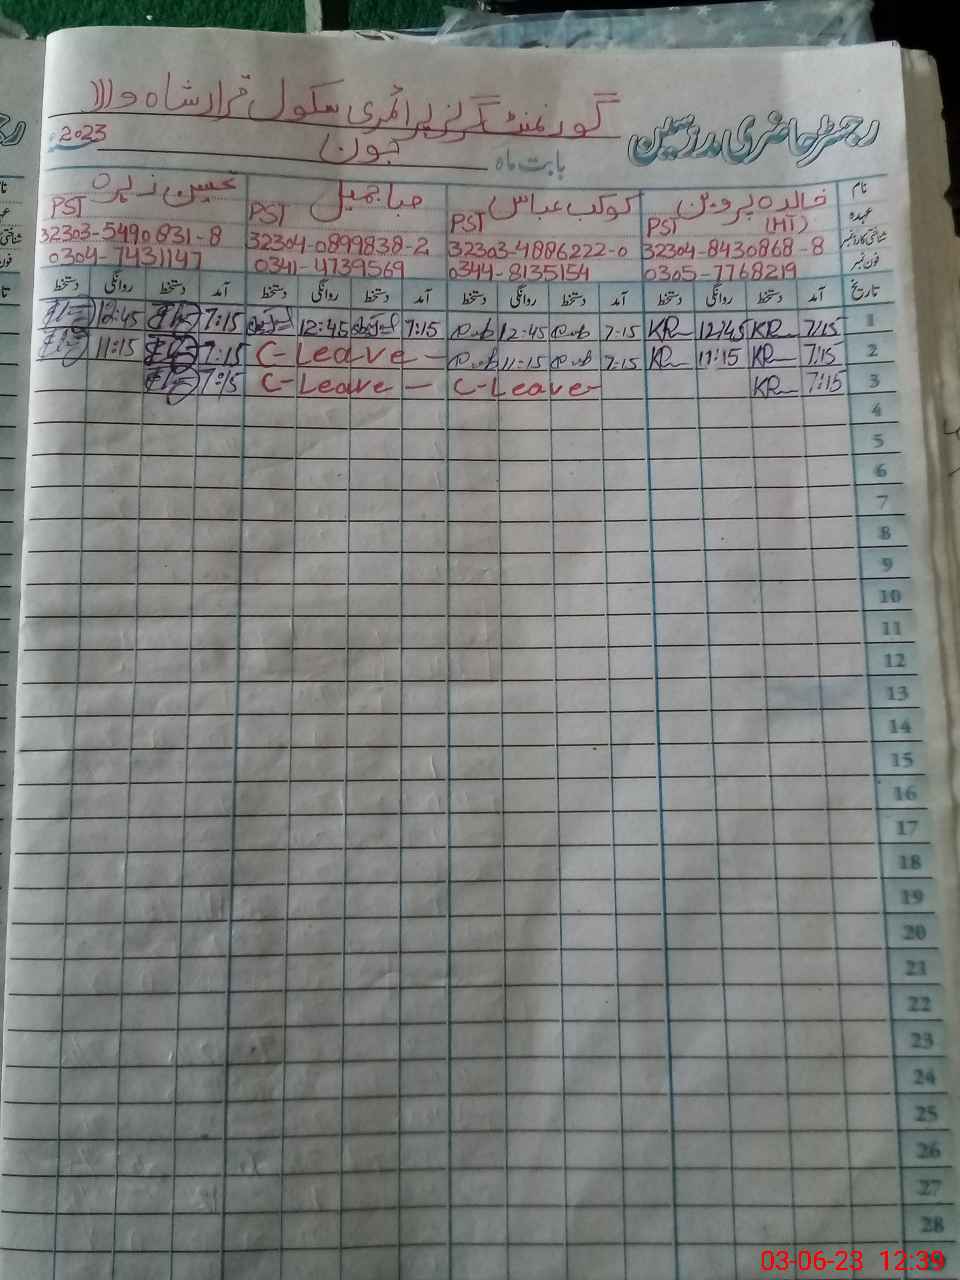 گورنمنٹ گرلز پرائمری سکول قرار شاہ والا
رجسٹر حاضری مدرسین
بابت ماہ جون 2023
نام خالدہ پروین کوکب عباس صبا جمیل تحسین زہرہ
عہدہ PST (HT) PST PST PST
شناختی کارڈ نمبر 32304-8430868-8 32303-4886222-0 32304-0899838-2 32303-5490831-8
فون نمبر 0305-7768219 0344-8135154 0341-4739569 0304-7431147
تاریخ آمد دستخط روانگی دستخط آمد دستخط روانگی دستخط آمد دستخط روانگی دستخط آمد دستخط روانگی دستخط
1 7:15 KR 12:45 KR 7:15 12:45 7:15 12:45 7:15 12:45
2 7:15 KR 11:15 KR 7:15 11:15 C-Leave- 7:15 11:15
3 7:15 KR C-Leave- C-Leave- 7:15
4
5
6
7
8
9
10
11
12
13
14
15
16
17
18
19
20
21
22
23
24
25
26
27
28
03-06-23 12:39